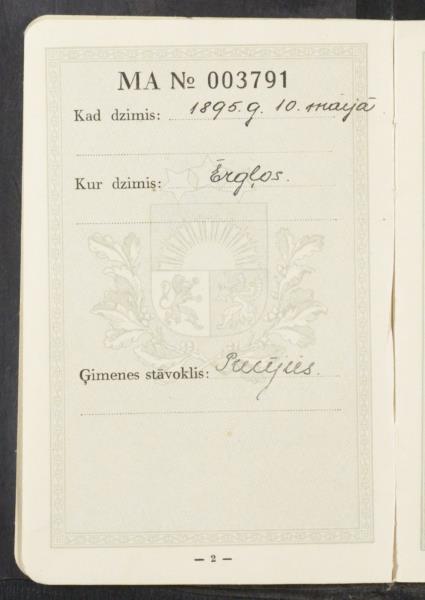 MA № 003791
Kad dzimis: 1895. g. 10. maijā
Kur dzimis: Ērgļos.
Ģimenes stāvoklis: Precējies.
— 2 —